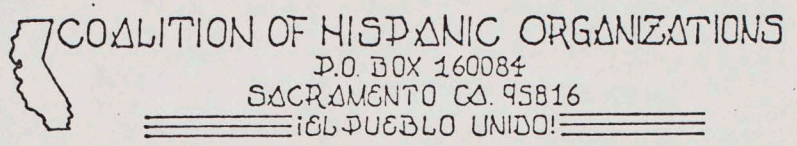 COALITION OF HISPANIC ORGANIZATIONS
P.O. BOX 160084
SACRAMENTO CA. 95816
¡EL PUEBLO UNIDO!